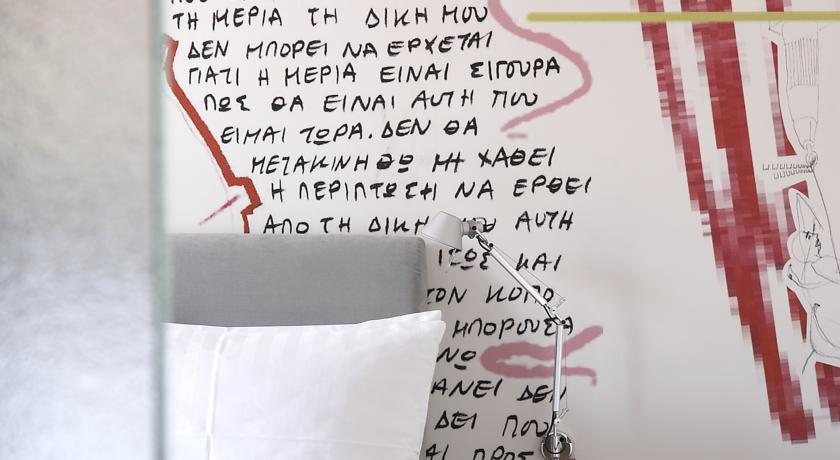 ΤΗ ΜΕΡΙΑ ΤΗ ΔΙΚΗ ΜΟΥ
ΔΕΝ ΜΠΟΡΕΙ ΝΑ ΕΡΧΕΤΑΙ
ΓΙΑΤΙ Η ΜΕΡΙΑ ΕΙΝΑΙ ΣΙΓΟΥΡΑ
ΠΩΣ ΘΑ ΕΙΝΑΙ ΑΥΤΗ ΠΟΥ
ΕΙΜΑΙ ΤΩΡΑ. ΔΕΝ ΘΑ
ΜΕΤΑΚΙΝΗΘΩ ΜΗ ΧΑΘΕΙ
Η ΠΕΡΙΠΤΩΣΗ ΝΑ ΕΡΘΕΙ
ΑΠΟ ΤΗ ΔΙΚΗ ΑΥΤΗ
ΙΣΩΣ ΚΑΙ
ΤΟΝ ΚΟΠΟ
ΜΠΟΡΟΥΣΑ
ΝΩ
ΑΝΕΙ ΔΕΝ
ΔΕΙ ΠΟΥ
ΑΙ ΠΡΟΣ